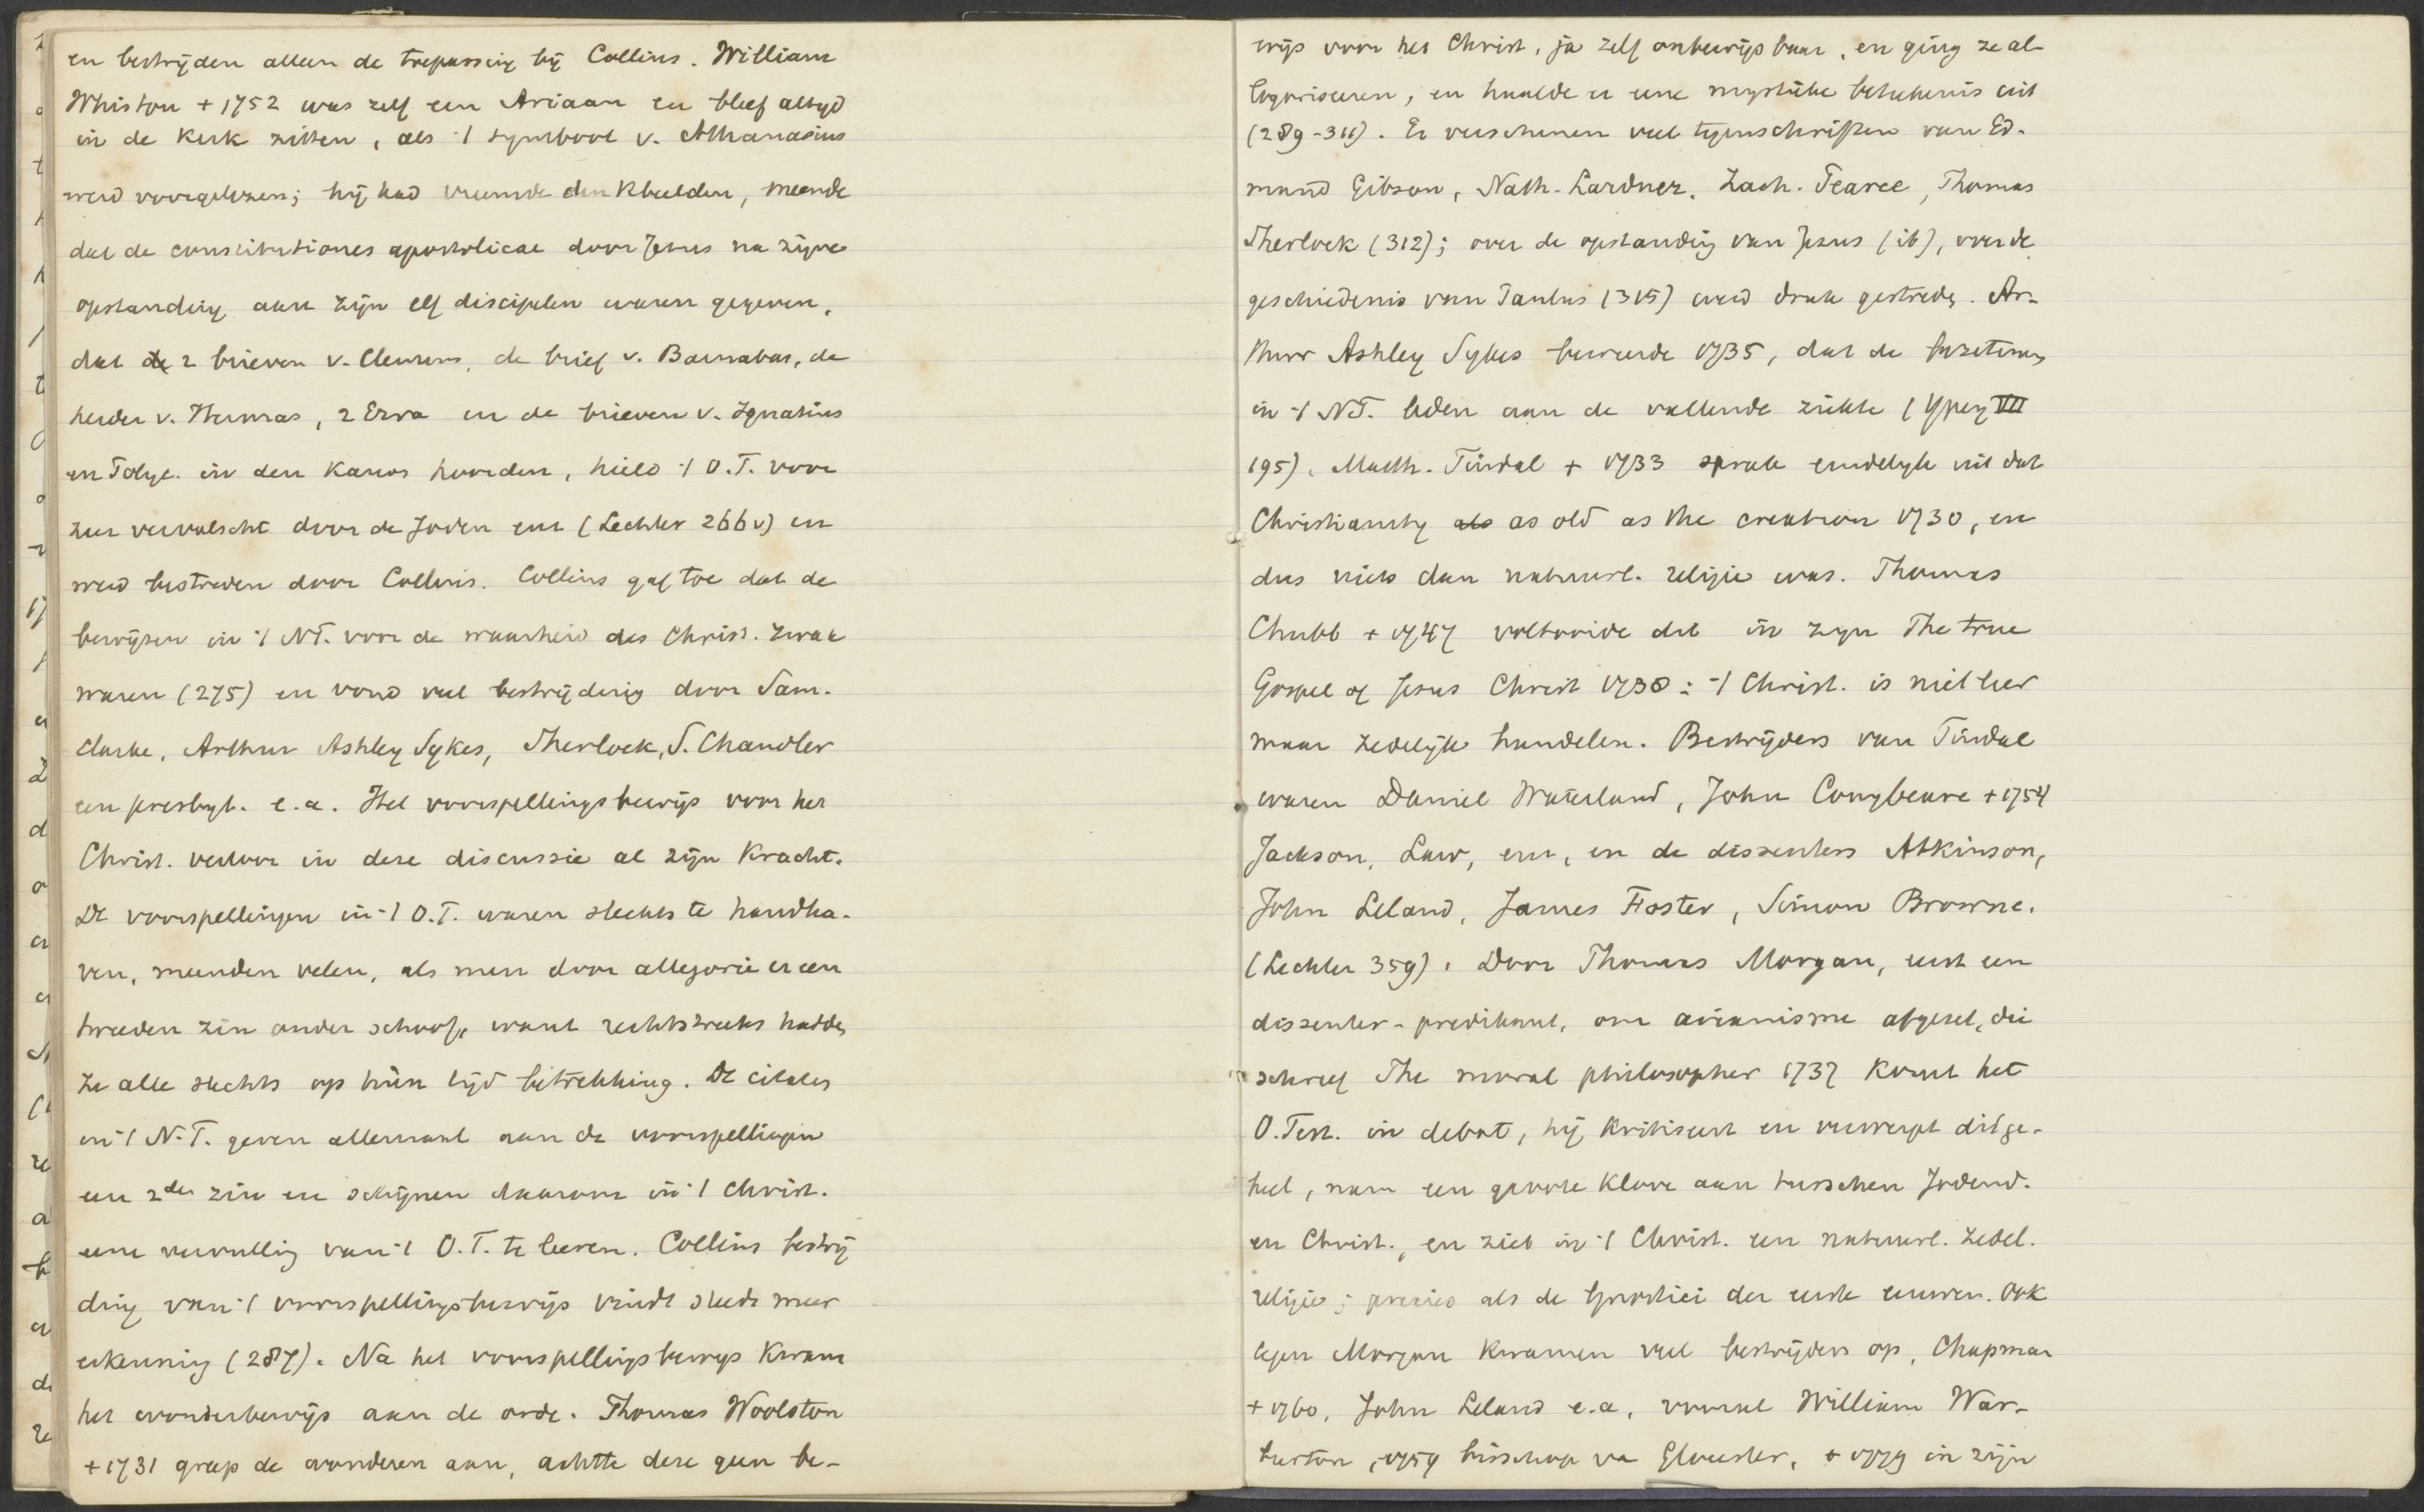 en bestrijden alleen de toepassing bij Collins. William
Whiston + 1752 was zelf een Ariaan en bleef altyd
in de Kerk zitten, als 't symbool v. Athanasius
werd voorgelezen; hij had vreemde denkbeelden, meende
dat de constitutiones apostolicae door Jezus na zijne
opstanding aan zijn elf discipelen waren gegeven,
dat de 2 brieven v. Clemens, de brief v. Barnabas, de
herder v. Hermas, 2 Ezra en de brieven v. Ignatius
en Polyc. in den Kanon hoorden, hield 't O.T. voor
zeer vervalscht door de Joden enz (Lechler 266v) en
werd bestreden door Collins. Collins gaf toe dat de
bewijzen in 't NT. voor de waarheid des Christ. zwak
waren (275) en vond veel bestrijding door Sam.
Clarke, Arthur Ashley Sykes, Sherlock, S. Chandler
een presbyt. e.a. Het voorspellingsbewijs voor het
Christ. verloor in deze discussie al zijn Kracht.
De voorspellingen in 't O.T. waren slechts te handha-
ven, meenden velen, als men door allegorie er een
tweeden zin onder schoof, want rechtstreeks hadden
ze alle slechts op hun tijd betrekking. De citaten
in 't N.T. geven allemaal aan de voorspellingen
een 2den zin en schijnen daarom in 't Christ.
eene vervulling van 't O.T. te leeren. Collins bestrij
ding van 't voorspellingsbewijs vindt steeds meer
erkenning (287). Na het voorspellingsbewys Kwam
het wonderbewijs aan de orde. Thomas Woolston
+ 1731 greep de wonderen aan, achtte deze geen be-
wijs voor het Christ, ja zelf onbewijsbaar, en ging ze al-
legoriseeren, en haalde er eene mystieke beteekenis uit
(289-311). Er verschenen veel tegenschriften van Ed-
mund Gibson, Nath. Lardner, Zach. Pearce, Thomas
Sherlock (312); over de opstanding van Jezus (ib), over de
geschiedenis van Paulus (315) werd druk gestreden. Ar-
thur Ashley Sykes beweerde 1735, dat de bezetenen
in 't NT. leden aan de vallende ziekte (Ypey VII
195). Matth. Tindal + 1733 sprak eindelyk uit dat
Christianity als as old as the creation 1730, en
dus niets dan natuurl. religie was. Thomas
Chubb + 1747 voltooide dit in zyn The true
Gospel of Jesus Christ 1738: 't Christ. is niet leer
maar zedelijk handelen. Bestrijders van Tindal
waren Daniel Waterland, John Conybeare + 1754
Jackson, Law, enz, en de dissenters Atkinson,
John Leland, James Foster, Simon Browne.
(Lechler 359). Door Thomas Morgan, eerst een
dissenter-predikant, om arianisme afgezet, die
schreef The moral philosopher 1737 Komt het
O.Test. in debat, hij kritiseert en verwerpt dit ge-
heel, nam een groote Klove aan tusschen Jodend.
en Christ., en ziet in 't Christ. een natuurl. zedel.
religie; precies als de Gnostici der eerste eeuwen. Ook
tegen Morgan kwamen veel bestrijders op, Chapman
+ 1760, John Leland e.a, vooral William War-
burton, 1759 bisschop va Gloucester, + 1779 in zijn